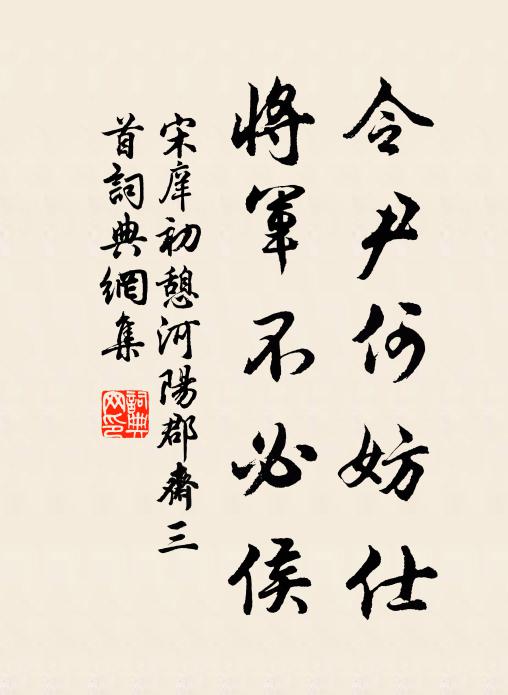 令尹何妨仕
將軍不必侯
宋庠初憩河陽郡齋三
首詞典網集
詞典
网印